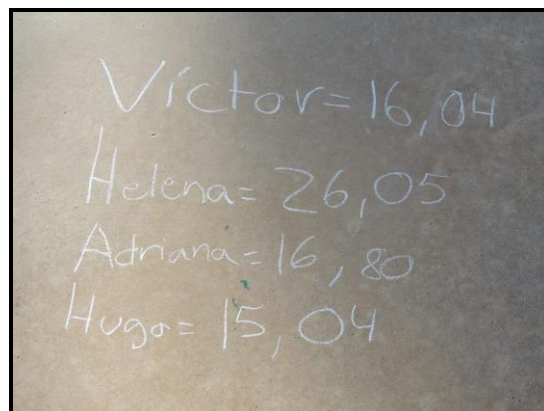 Víctor=16,04
Helena=26,05
Adriana=16,80
Hugo=15,04